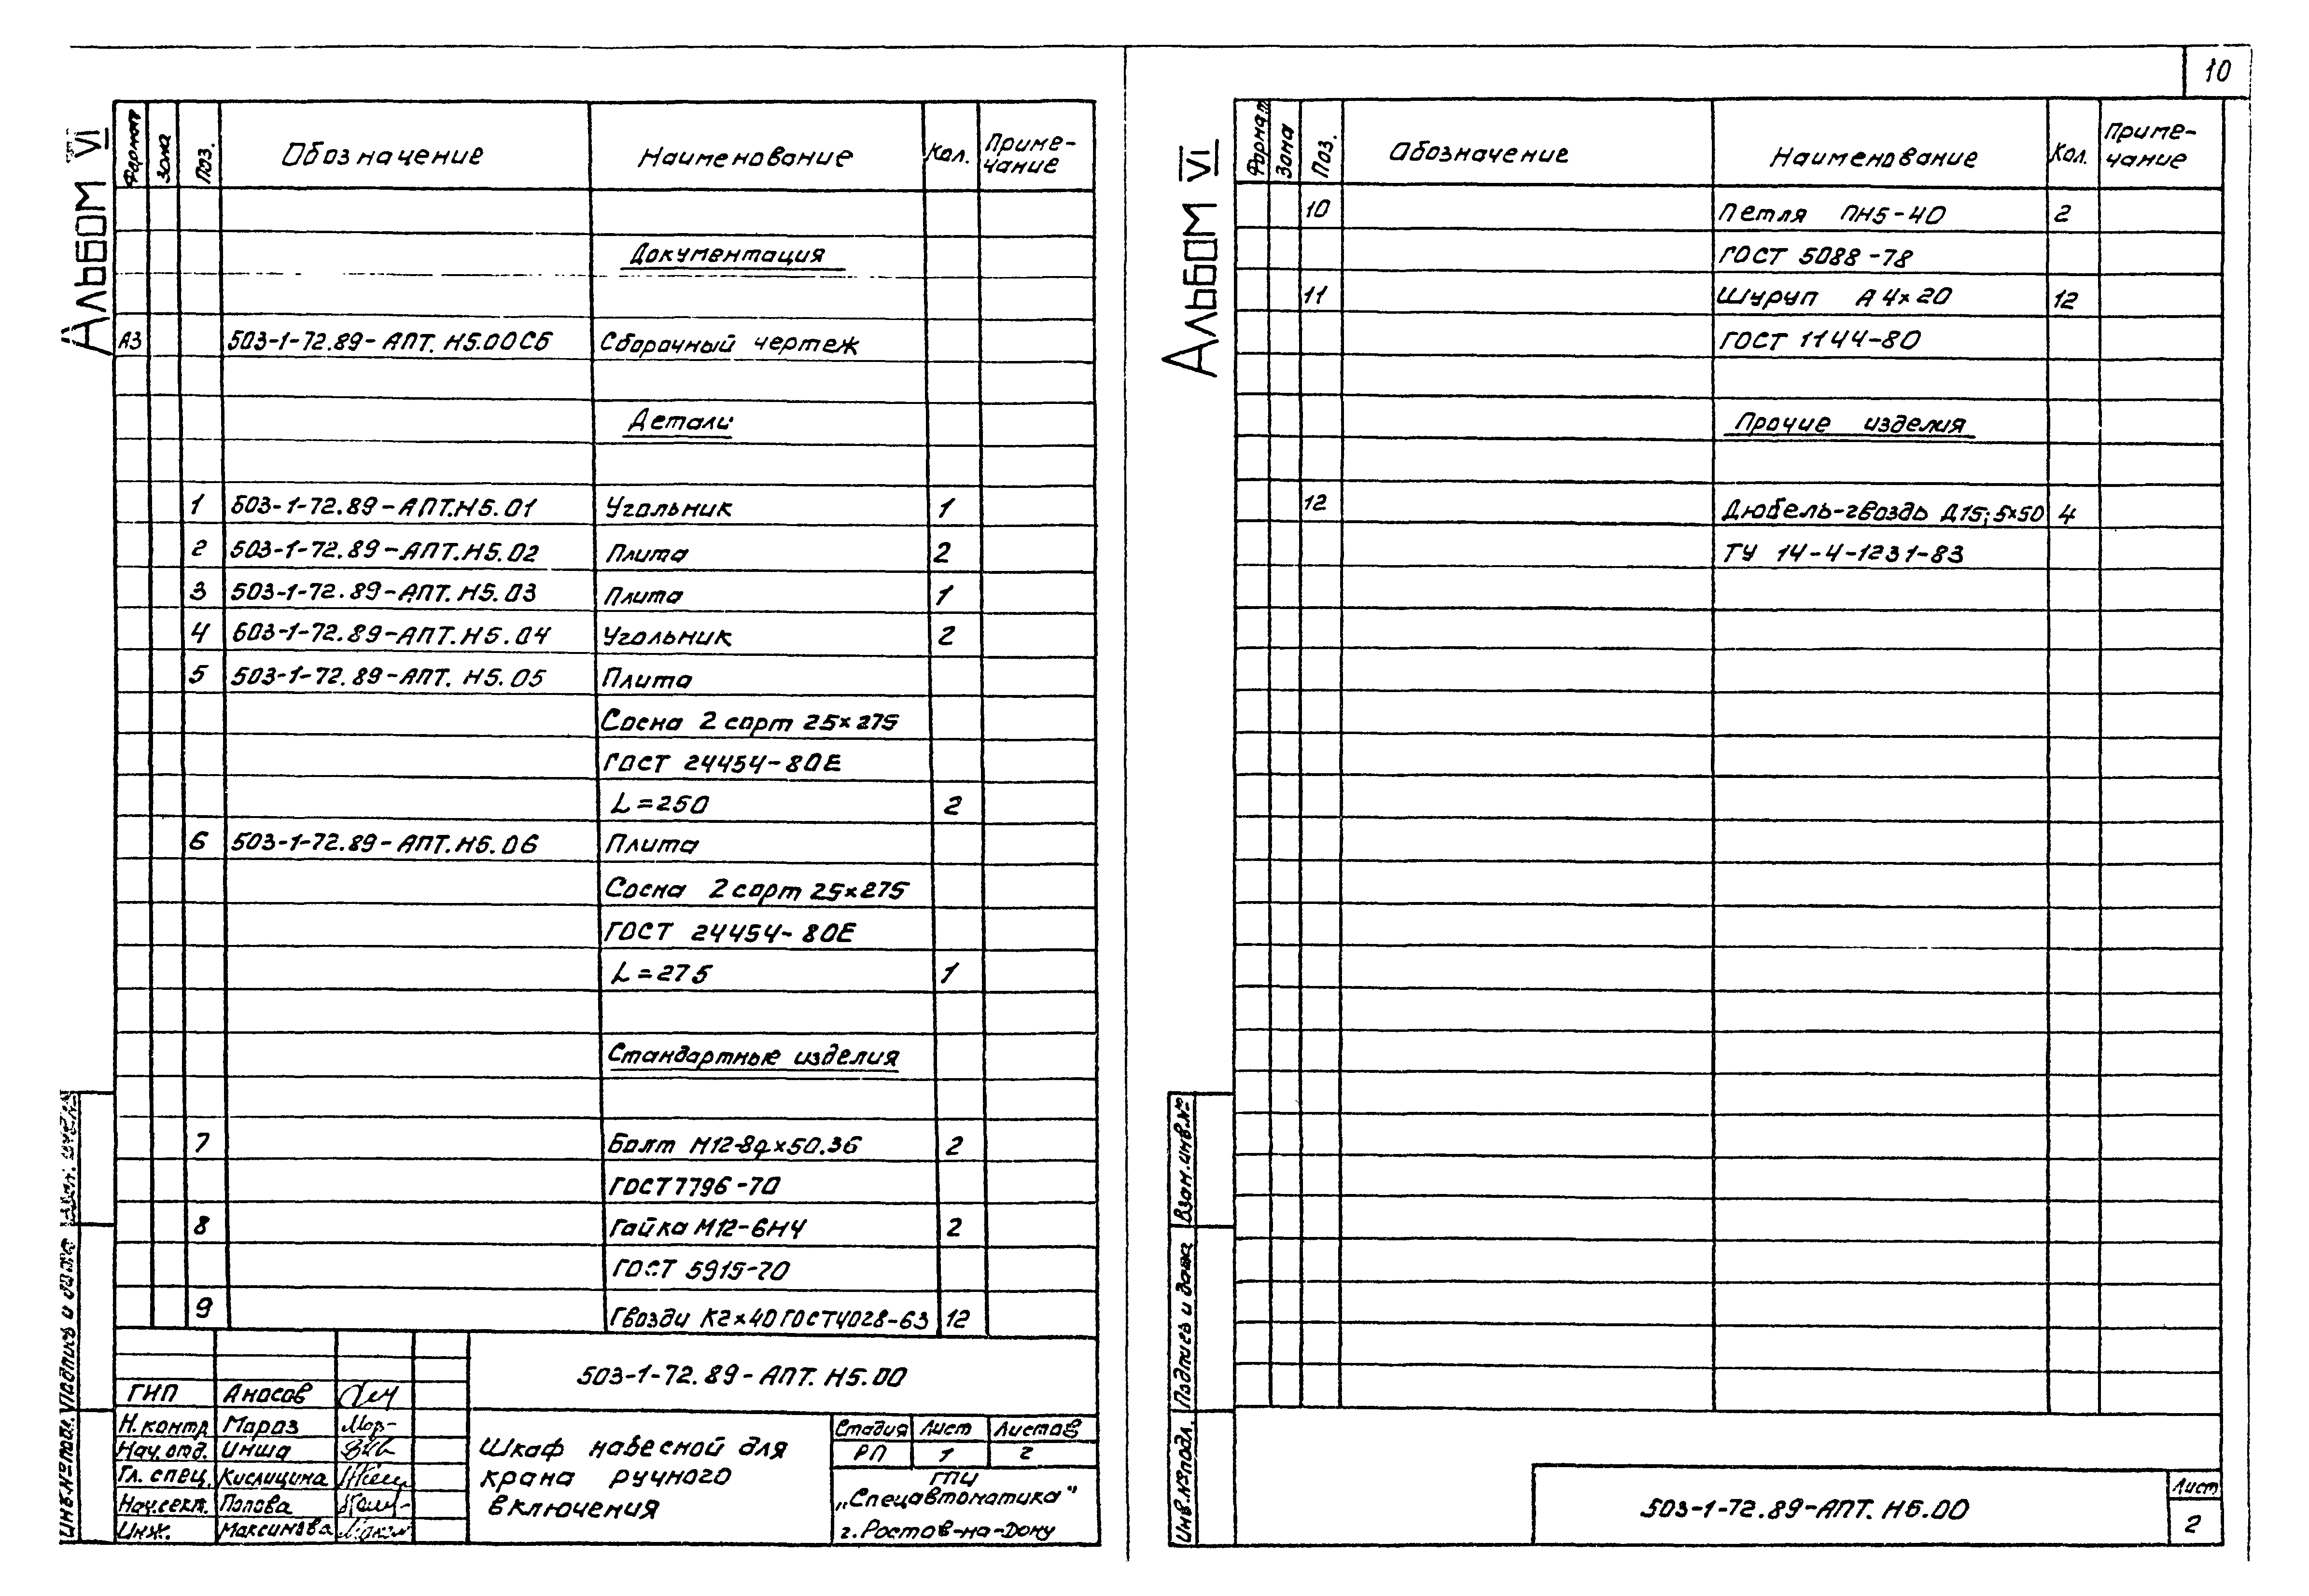 10
Альбом VI
Формат Зона Поз. Обозначение Наименование Кол. Приме-
чание
Документация
А3 503-1-72.89-АПТ.Н5.00СБ Сборочный чертеж
Детали
1 503-1-72.89-АПТ.Н5.01 Угольник 1
2 503-1-72.89-АПТ.Н5.02 Плита 2
3 503-1-72.89-АПТ.Н5.03 Плита 1
4 503-1-72.89-АПТ.Н5.04 Угольник 2
5 503-1-72.89-АПТ.Н5.05 Плита
Сосна 2 сорт 25×275
ГОСТ 24454-80Е
L=250 2
6 503-1-72.89-АПТ.Н5.06 Плита
Сосна 2 сорт 25×275
ГОСТ 24454-80Е
L=275 1
Стандартные изделия
7 Болт М12-8g×50.36 2
ГОСТ 7796-70
8 Гайка М12-6Н4 2
ГОСТ 5915-70
9 Гвозди К2×40 ГОСТ4028-63 12
503-1-72.89-АПТ.Н5.00
ГИП Аносов
Н.контр Мароз
Нач.отд. Инша
Гл. спец. Кислицина
Нач.сект. Попова
Инж. Максимова
Шкаф навесной для
крана ручного
включения
Стадия Лист Листов
РП 1 2
ГПИ
„Спецавтоматика"
г.Ростов-на-Дону
Инв.№подл. Подпись и дата Взам. инв.№
Альбом VI
Формат Зона Поз. Обозначение Наименование Кол. Приме-
чание
10 Петля ПН5-40 2
ГОСТ 5088-78
11 Шуруп А4×20 12
ГОСТ 1144-80
Прочие изделия
12 Дюбель-гвоздь Д15;5×50 4
ТУ 14-4-1231-83
Инв.№подл. Подпись и дата Взам.инв.№
503-1-72.89-АПТ.Н5.00
Лист
2